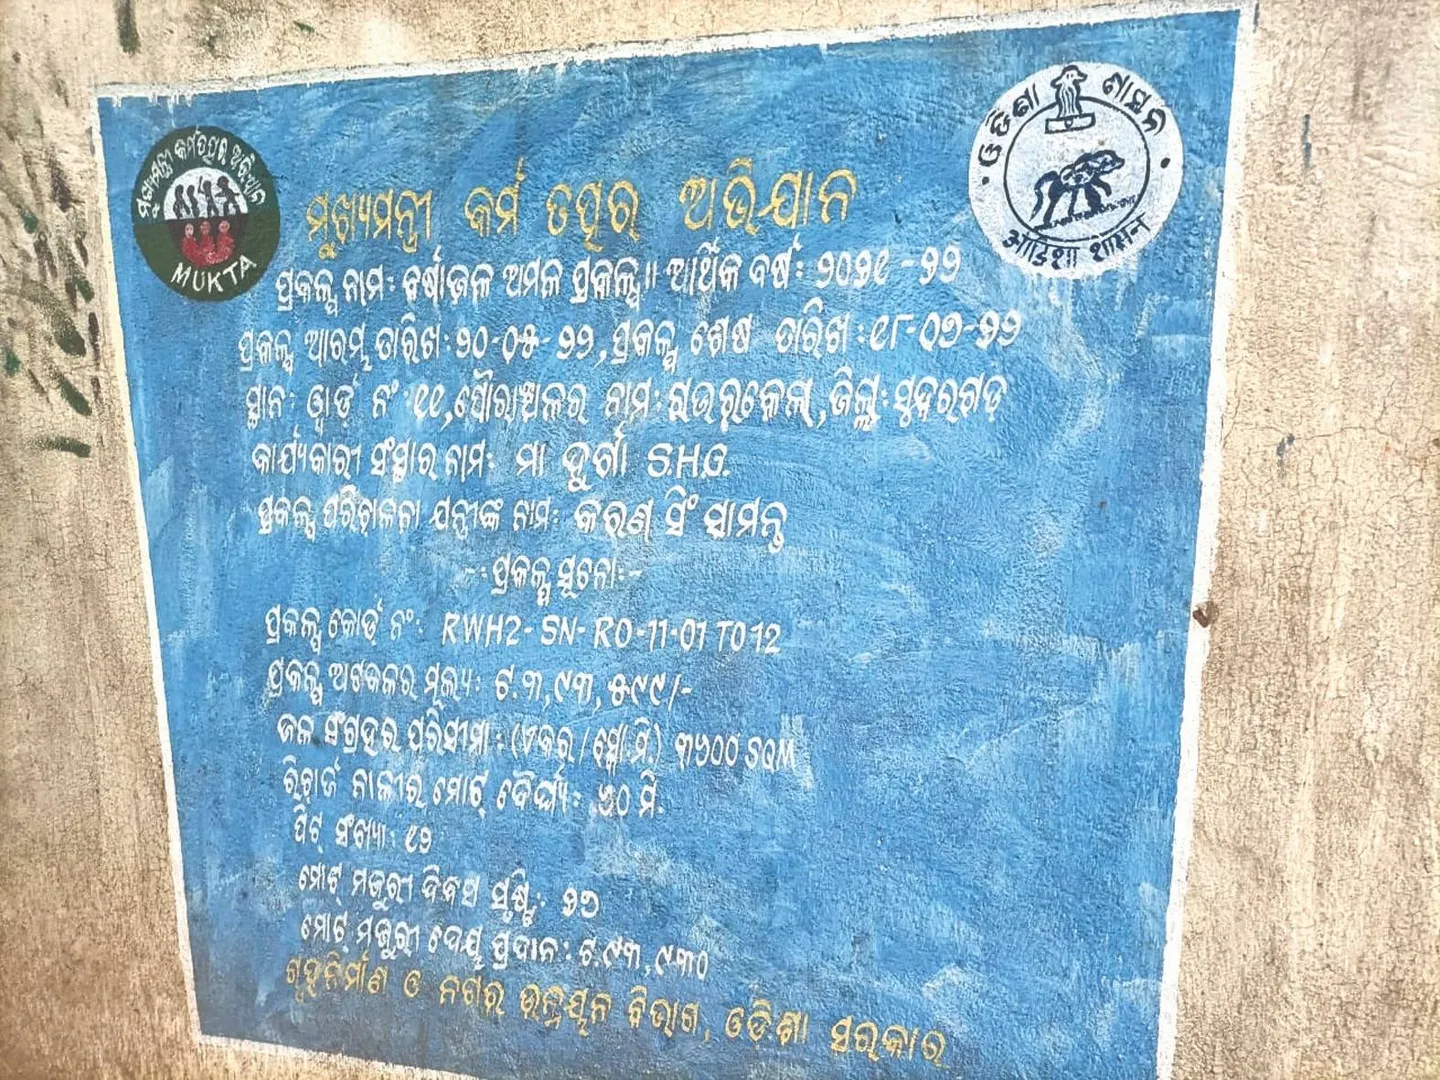 ମୁଖ୍ୟମନ୍ତ୍ରୀ କର୍ମତତ୍ପର ଅଭିଯାନ
MUKTA
ଓଡିଶା ଶାସନ
ओड़िशा शासन
ମୁଖ୍ୟମନ୍ତ୍ରୀ କର୍ମ ତତ୍ପର ଅଭିଯାନ
ପ୍ରକଳ୍ପ ନାମ: ବର୍ଷାଜଳ ଅମଳ ପ୍ରକଳ୍ପ॥ ଆର୍ଥିକ ବର୍ଷ: ୨୦୨୧-୨୨
ପ୍ରକଳ୍ପ ଆରମ୍ଭ ତାରିଖ: ୨୦-୦୫-୨୨, ପ୍ରକଳ୍ପ ଶେଷ ତାରିଖ: ୧୮-୦୭-୨୨
ସ୍ଥାନ: ୱାର୍ଡ଼ ନଂ ୧୧, ପୌରାଞ୍ଚଳର ନାମ: ରାଉରକେଲା, ଜିଲ୍ଲା: ସୁନ୍ଦରଗଡ଼
କାର୍ଯ୍ୟକାରୀ ସଂସ୍ଥାର ନାମ: ମା ଦୁର୍ଗା S.H.G.
ପ୍ରକଳ୍ପ ପରିଚାଳନା ଯନ୍ତ୍ରୀଙ୍କ ନାମ: କରଣ ସିଂ ସାମନ୍ତ
-: ପ୍ରକଳ୍ପ ସୂଚନା :-
ପ୍ରକଳ୍ପ କୋଡ଼୍ ନଂ: RWH2-SN-RO-11-01 TO 12
ପ୍ରକଳ୍ପ ଅଟକଳର ମୂଲ୍ୟ: ଟ.୩,୯୩,୫୯୯/-
ଜଳ ସଂଗ୍ରହର ପରିସୀମା: (ଏକର/ସ୍କୋ.ମି.) ୩୬୦୦ SQM
ରିଚାର୍ଜ ନାଳୀର ମୋଟ୍ ଦୈର୍ଘ୍ୟ: ୬୦ ମି.
ପିଟ୍ ସଂଖ୍ୟା: ୧୨
ମୋଟ୍ ମଜୁରୀ ଦିବସ ସୃଷ୍ଟି:
ମୋଟ୍ ମଜୁରୀ ଦେୟ ପ୍ରଦାନ: ଟ.୯୩,୯୩୦
ଗୃହନିର୍ମାଣ ଓ ନଗର ଉନ୍ନୟନ ବିଭାଗ, ଓଡ଼ିଶା ସରକାର